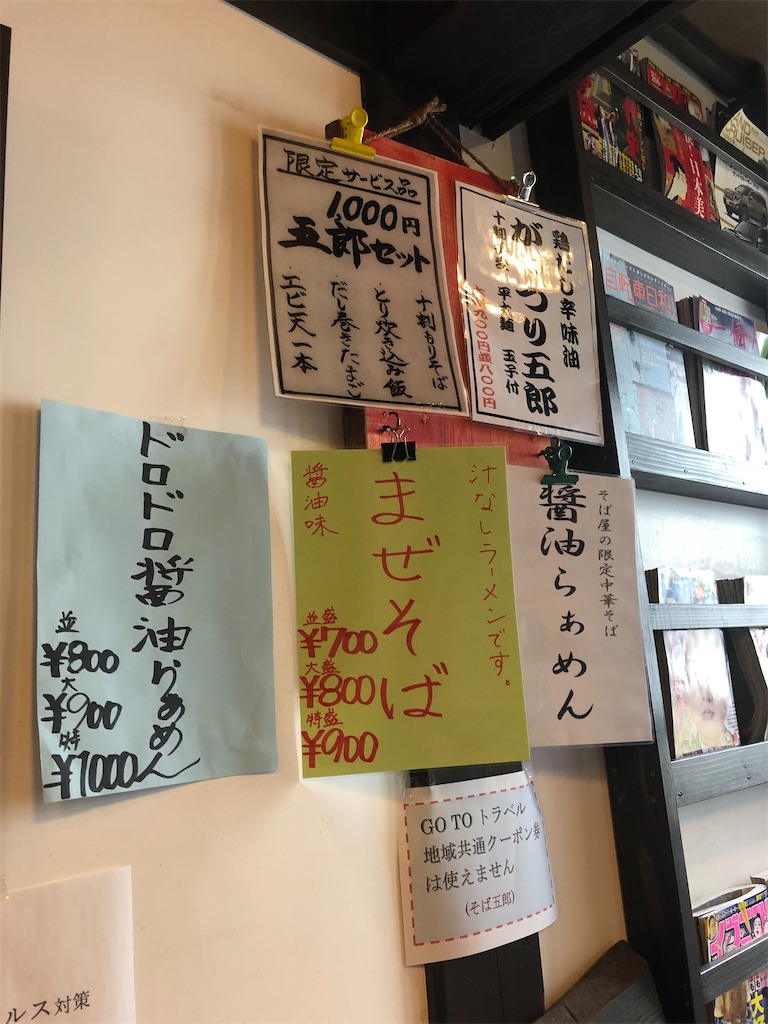 限定サービス品
1,000円
五郎セット
十割もりそば
とり炊き込み飯
だし巻きたまご
エビ天一本
鶏だし辛味油
がっつり五郎
平太麺 玉子付
並八〇〇円
ドロドロ醤油らぁめん
並
¥800
大
¥900
特
¥1000
汁なしラーメンです。
まぜそば
醤油味
並盛
¥700
大盛
¥800
特盛
¥900
そば屋の限定中華そば
醤油らぁめん
GO TO トラベル
地域共通クーポン券
は使えません
(そば五郎)
ルス対策
自転車日和
日本美
CRUISER